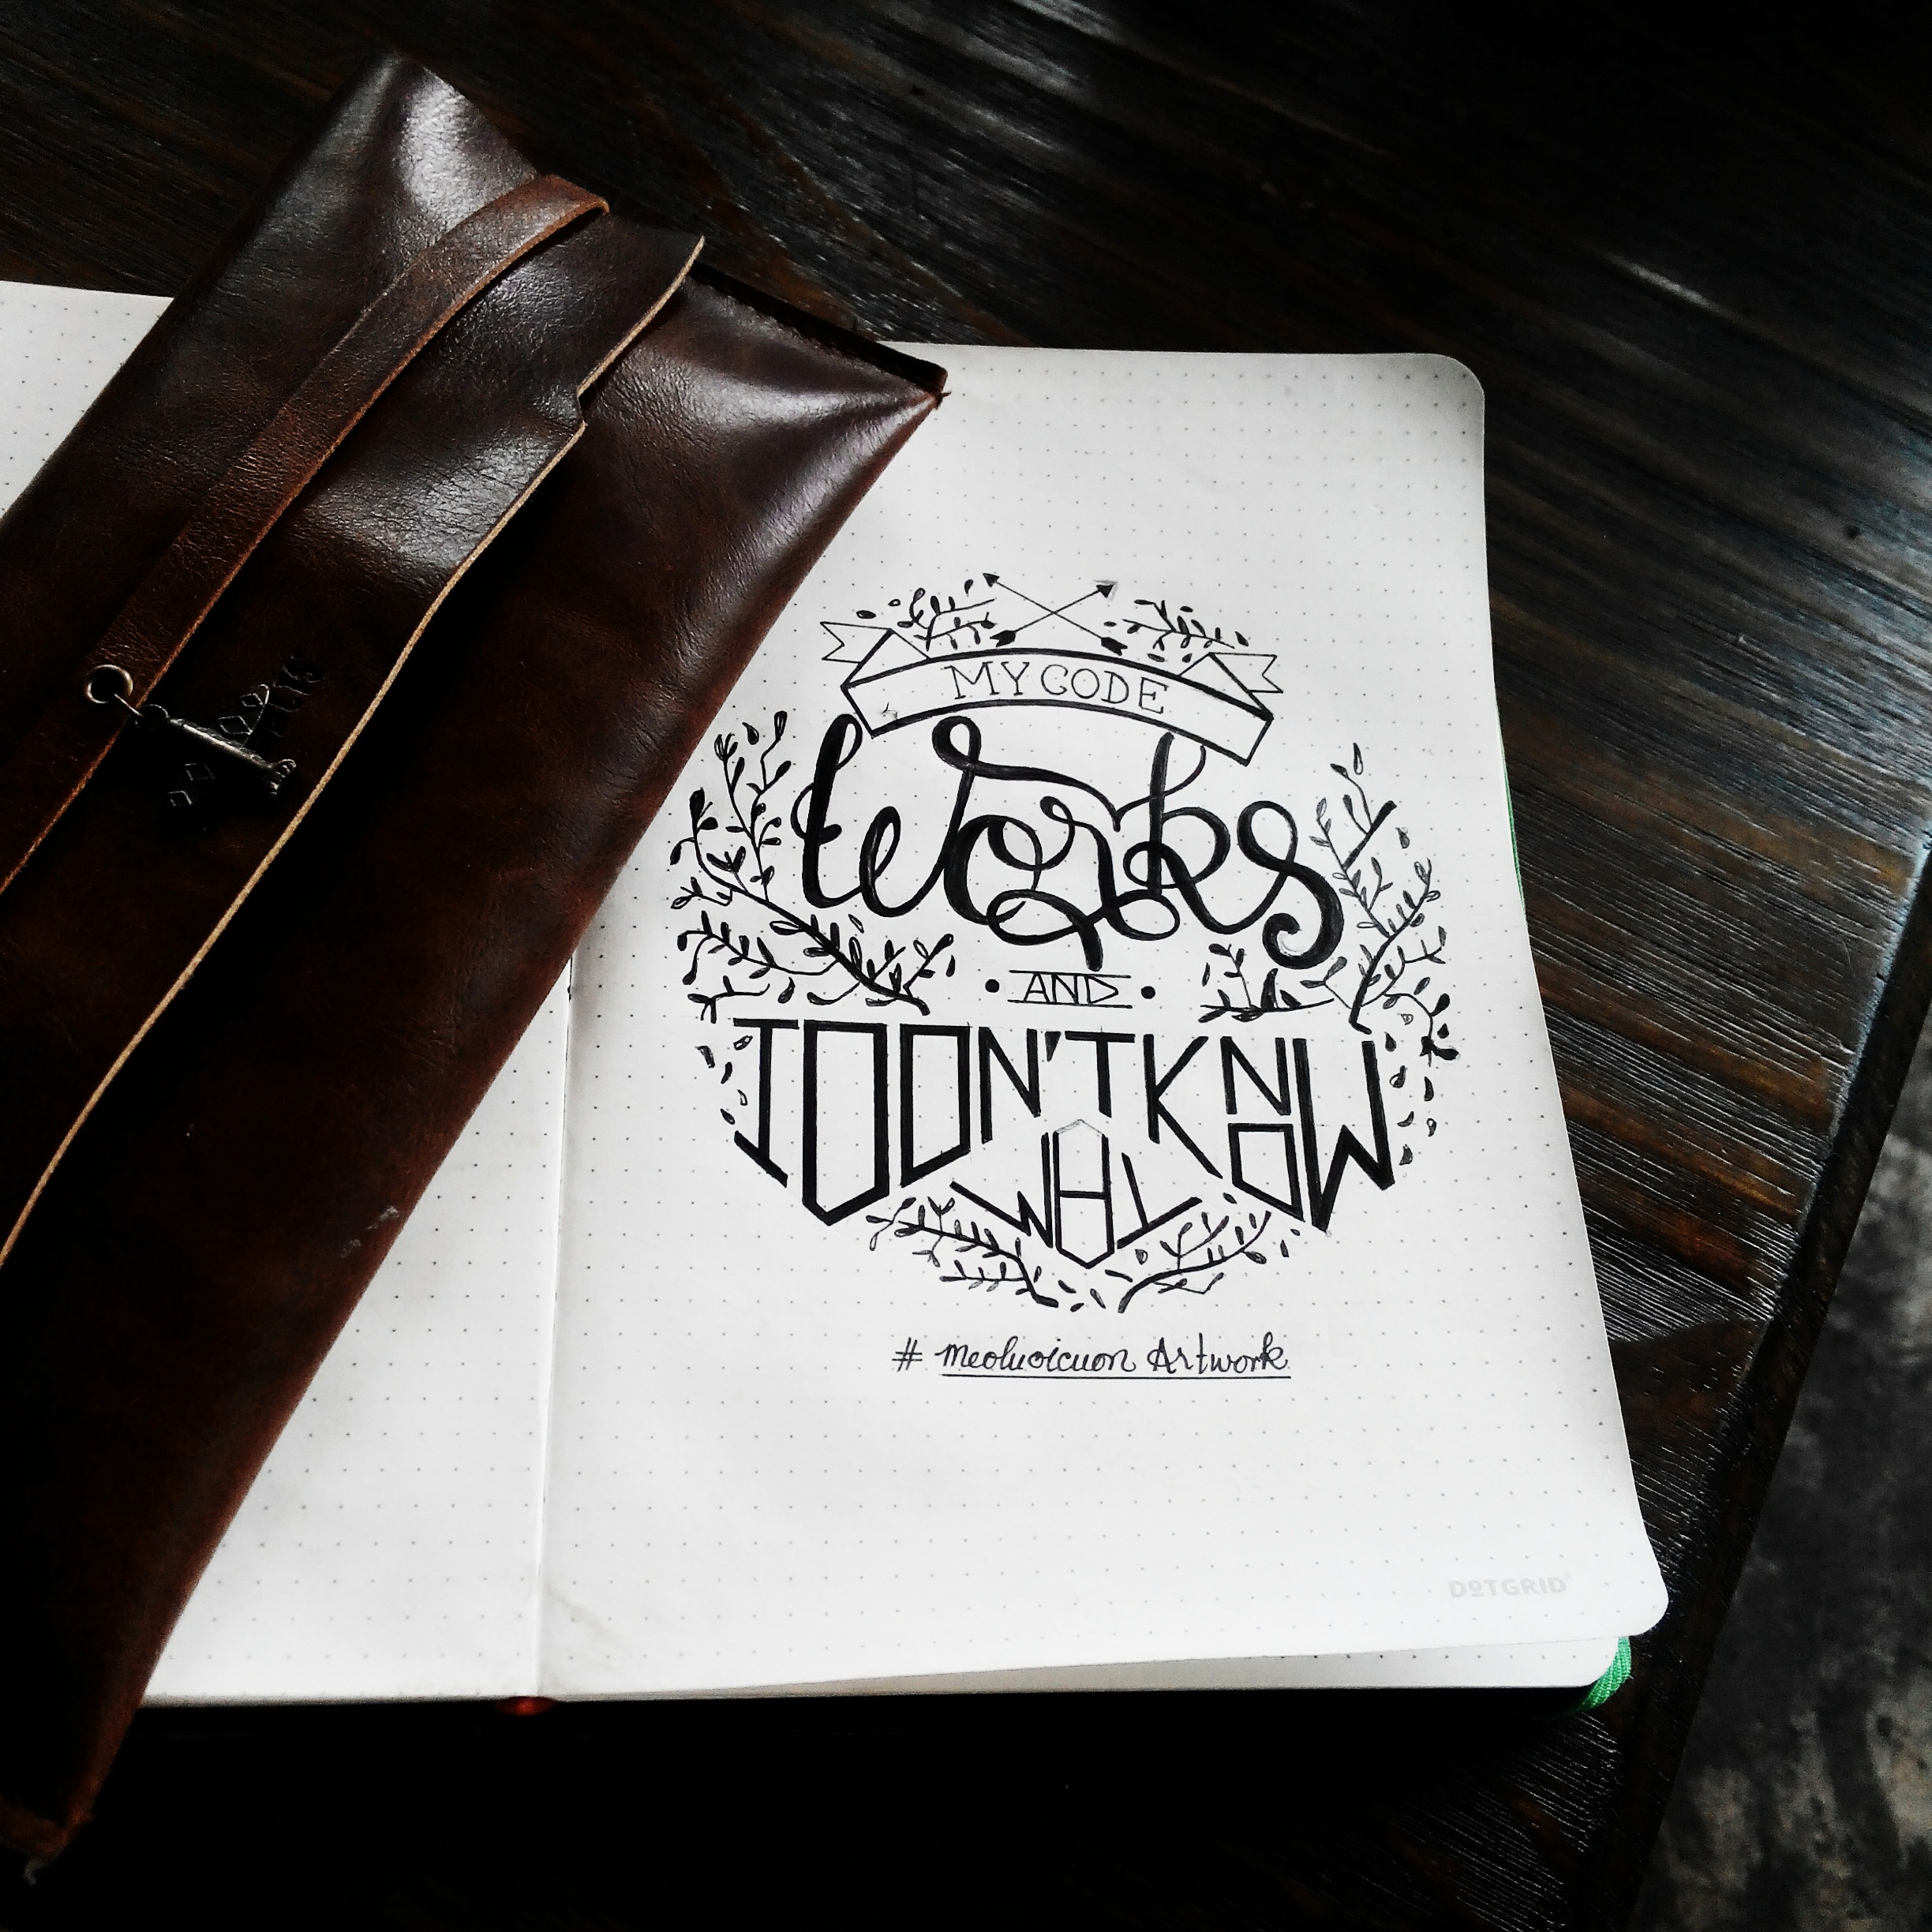 MY CODE
Works
AND
I DON'T KNOW
WHY
# meoluoicuon Artwork
DOTGRID